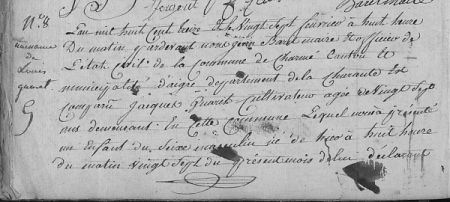 N°. 8
naissance
de
Louis
L'an mil huit Cent treize le vingt sept fevrier à huit heure
du matin pardevant nous maire officier de
L'état civil de la commune de Charmé Canton et
municipalité d'aigre departement de la Charente est
Comparu jacques Cultivateur agée de vingt sept
ans demeurant En Cette Commune Lequel nous a présenté
un Enfant du Sexe masculin né de à huit heure
du matin vingt Sept du présent mois de lui déclarant